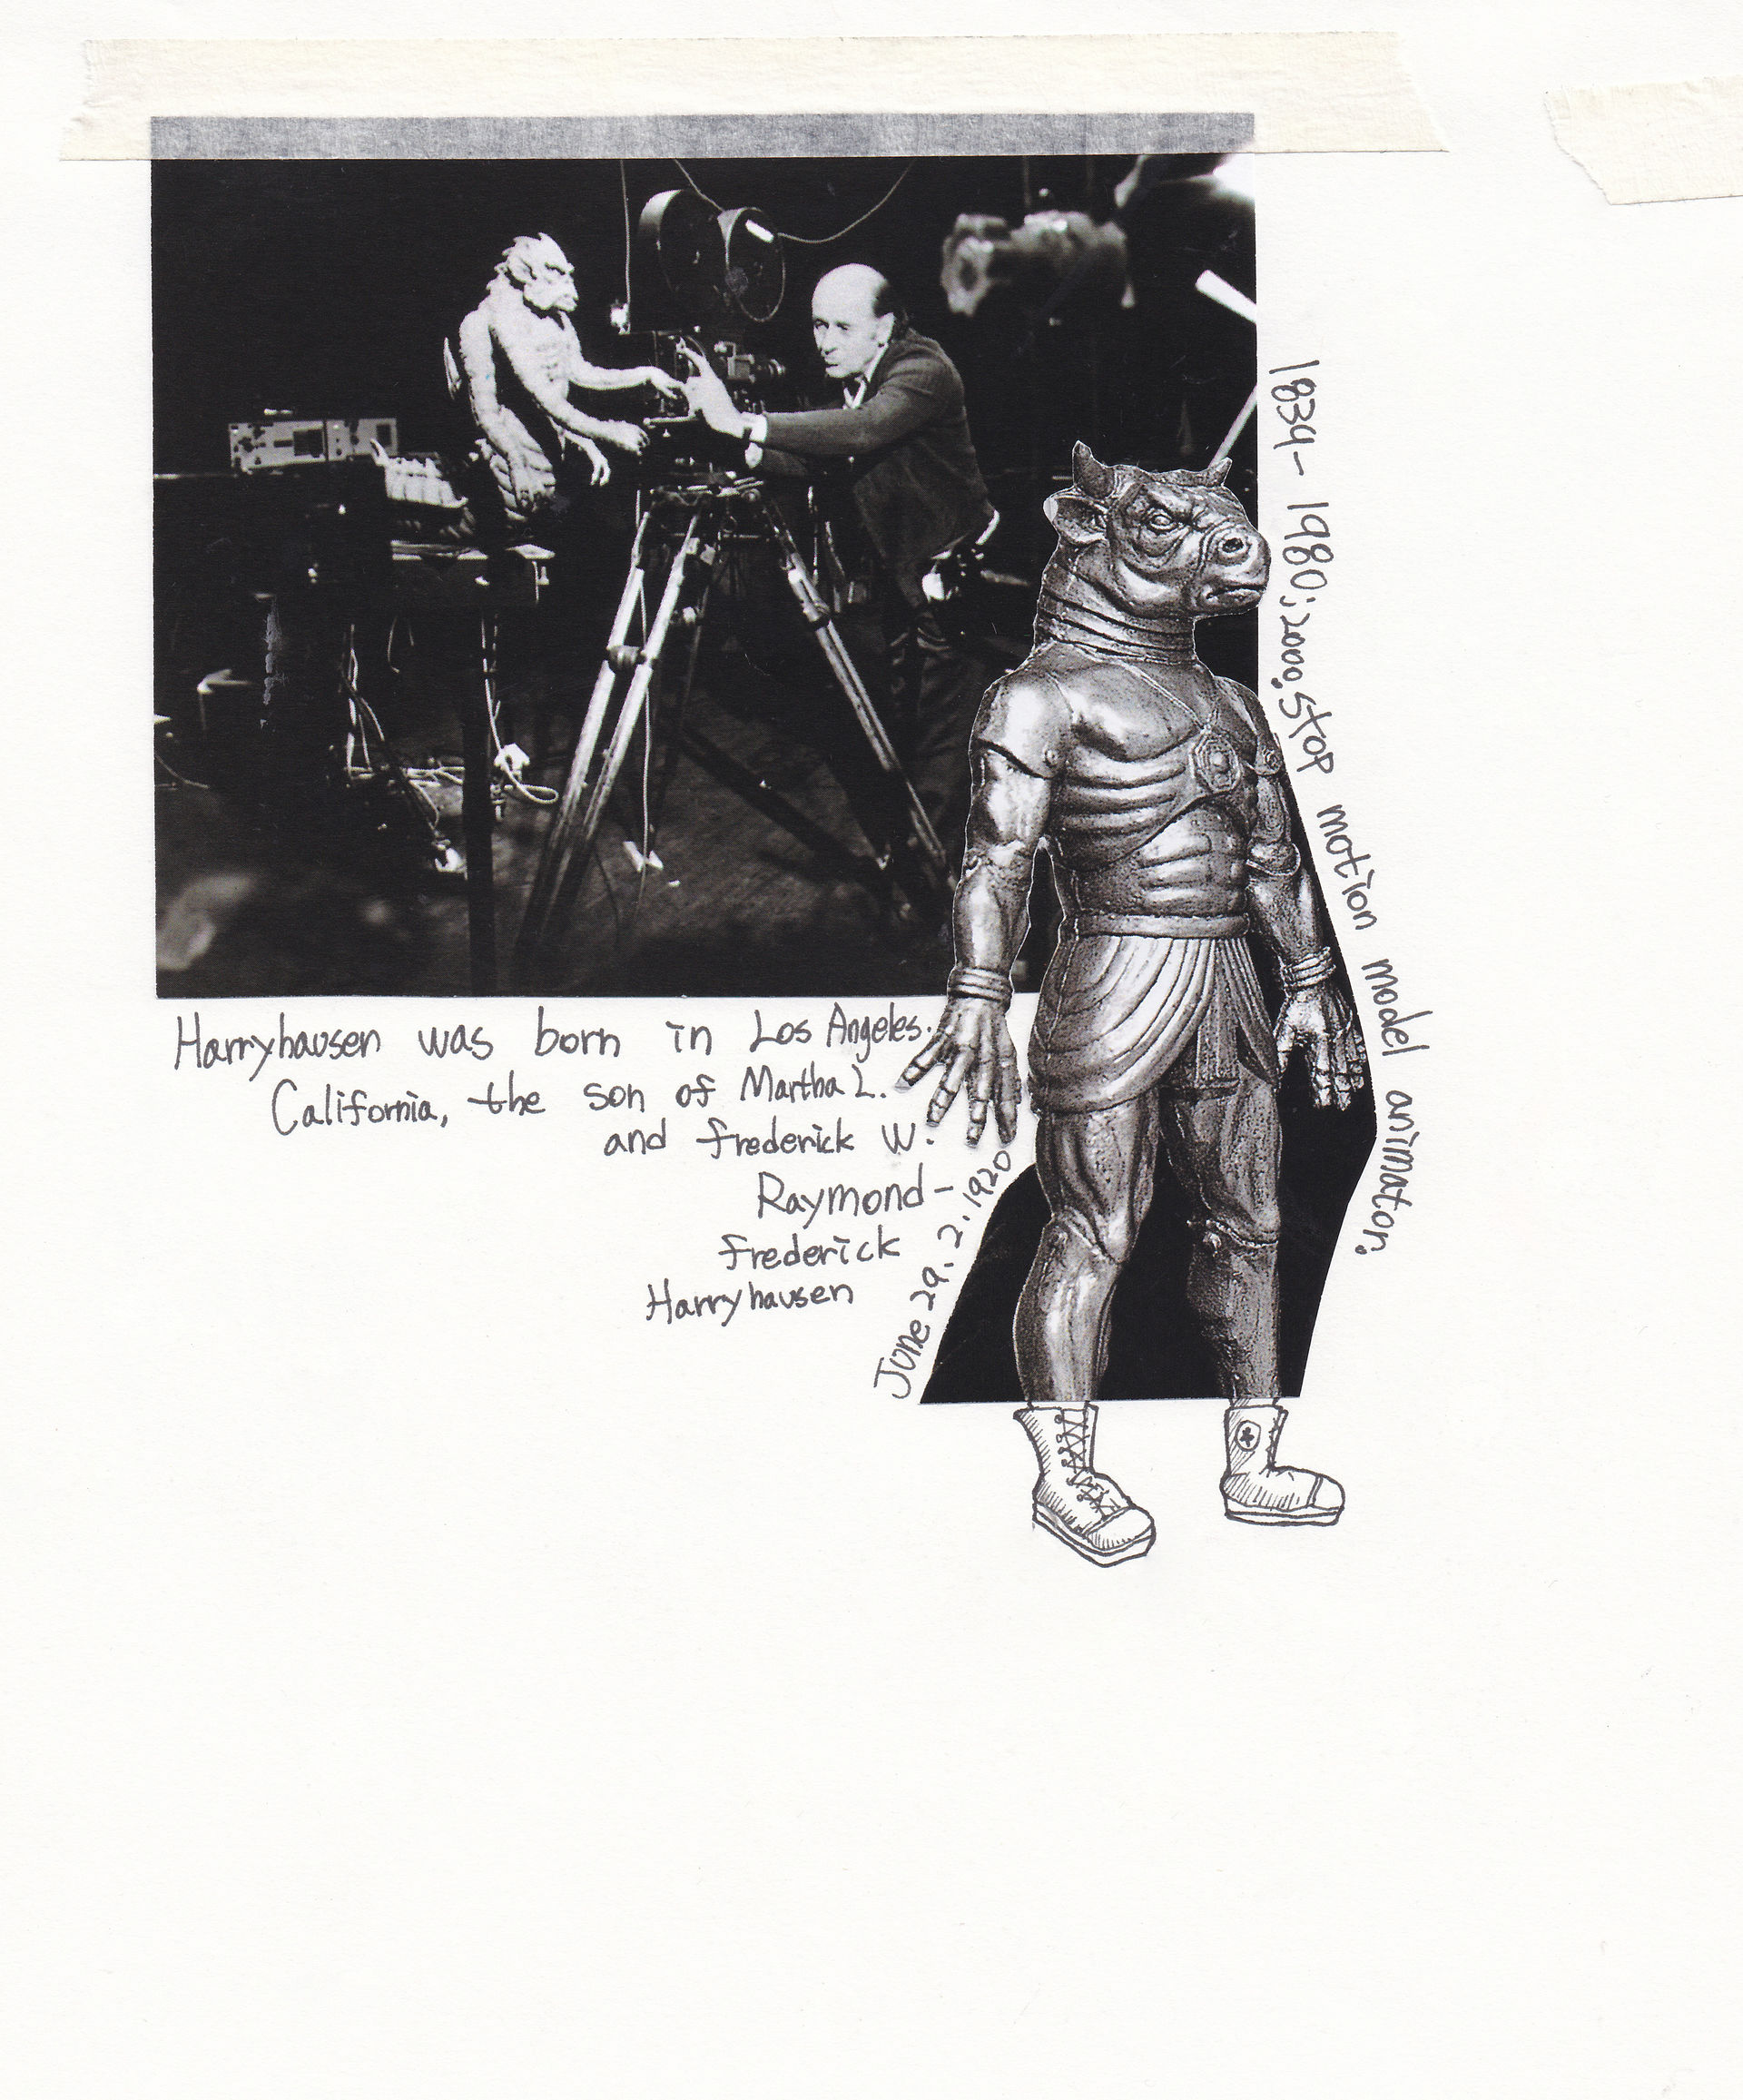 Harryhausen was born in Los Angeles.
California, the son of Martha L.
and frederick W.
Raymond-
frederick
Harryhausen
June 29. 2. 1920
1939- 1980; 2000. Stop motion model animator.